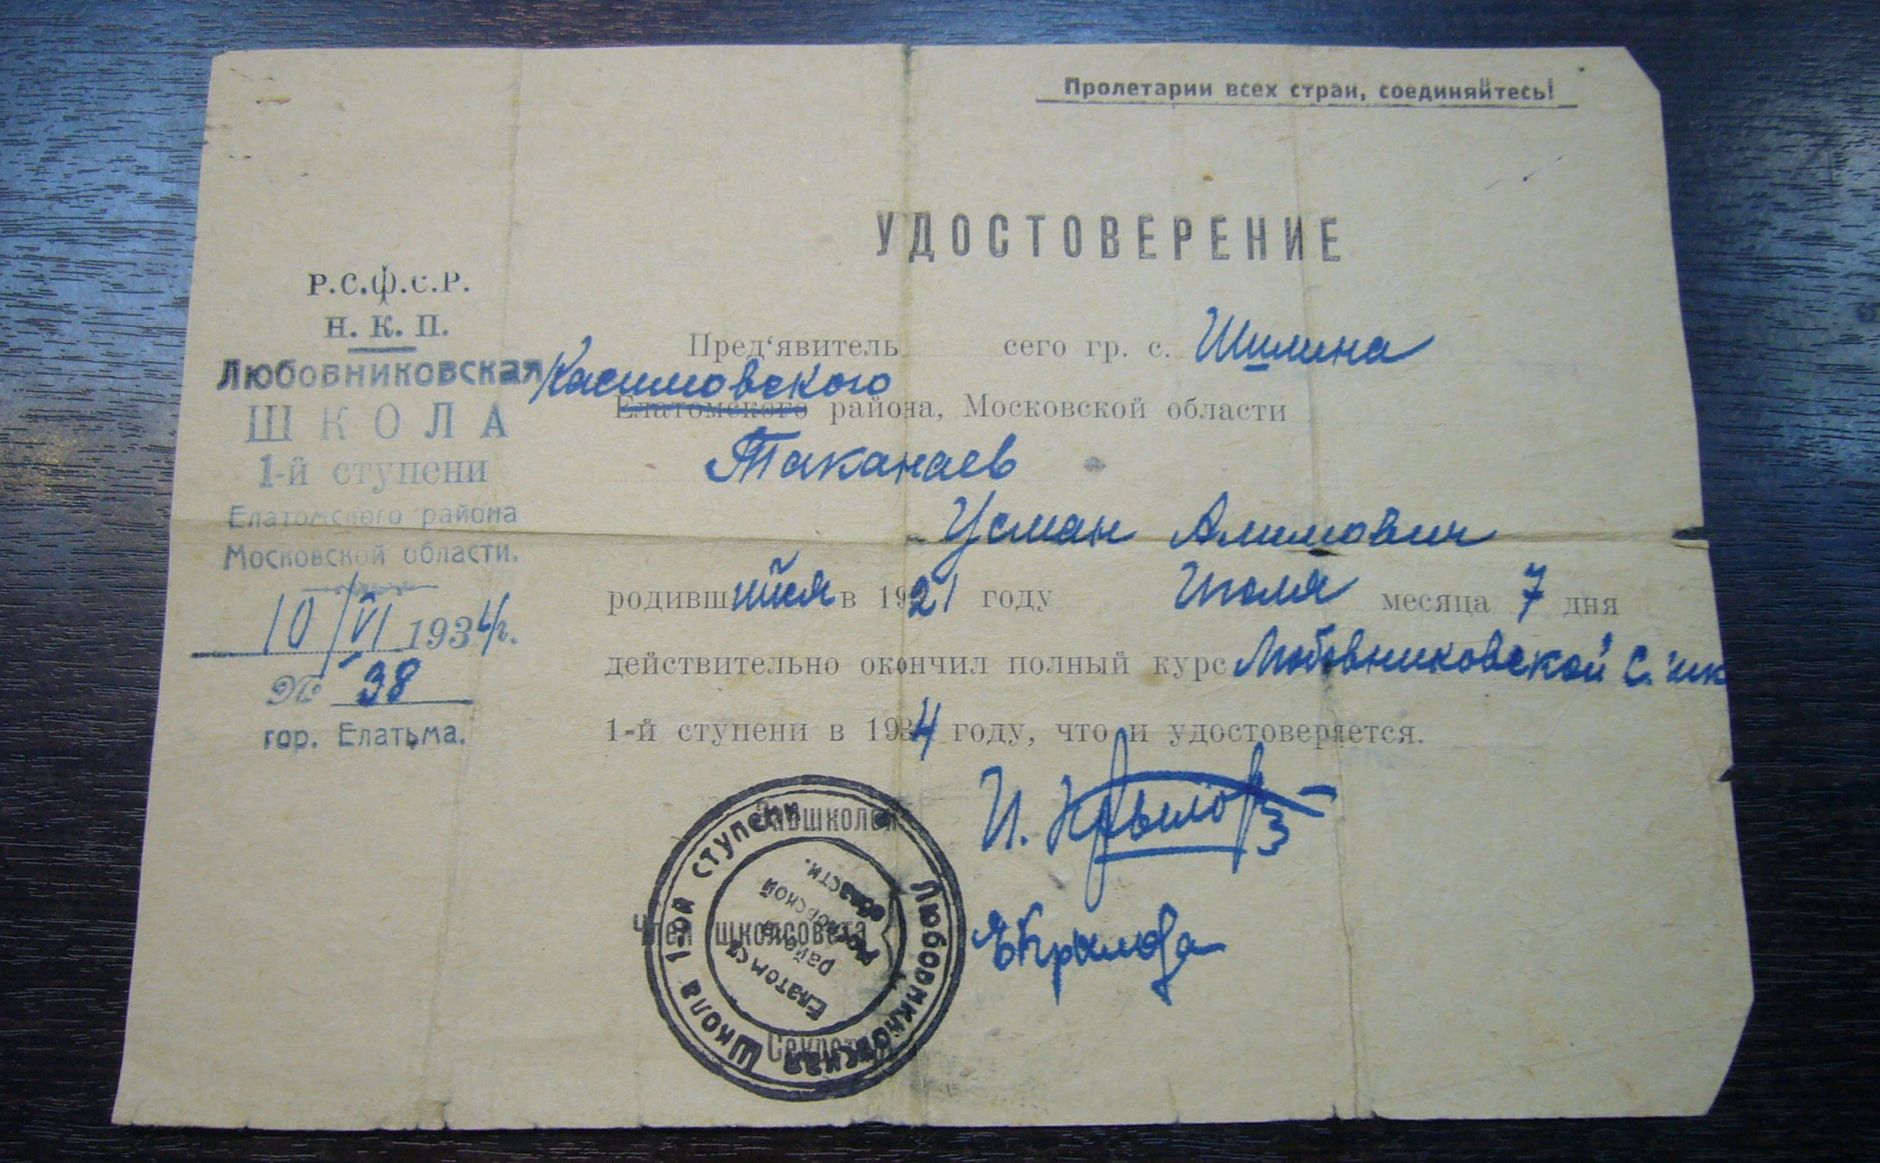 Пролетарии всех стран, соединяйтесь!
УДОСТОВЕРЕНИЕ
Р.С.Ф.С.Р.
Н. К. П.
Любовниковская
ШКОЛА
1-й ступени
Елатомского района
Московской области.
10/VI 1934 г.
№ 38
гор. Елатьма.
Пред'явитель сего гр. с. Шилина
Касимовского
Елатомского района, Московской области
Таканаев
Усман Алимович
родившийся в 1921 году Июля месяца 7 дня
действительно окончил полный курс Любовниковской С. шк
1-й ступени в 1934 году, что и удостоверяется.
Завшколой И. Крылов
Член школсовета ЕКрылова
Секретарь
Любовниковская Школа 1-ой ступени
Елатомск района Московской области.